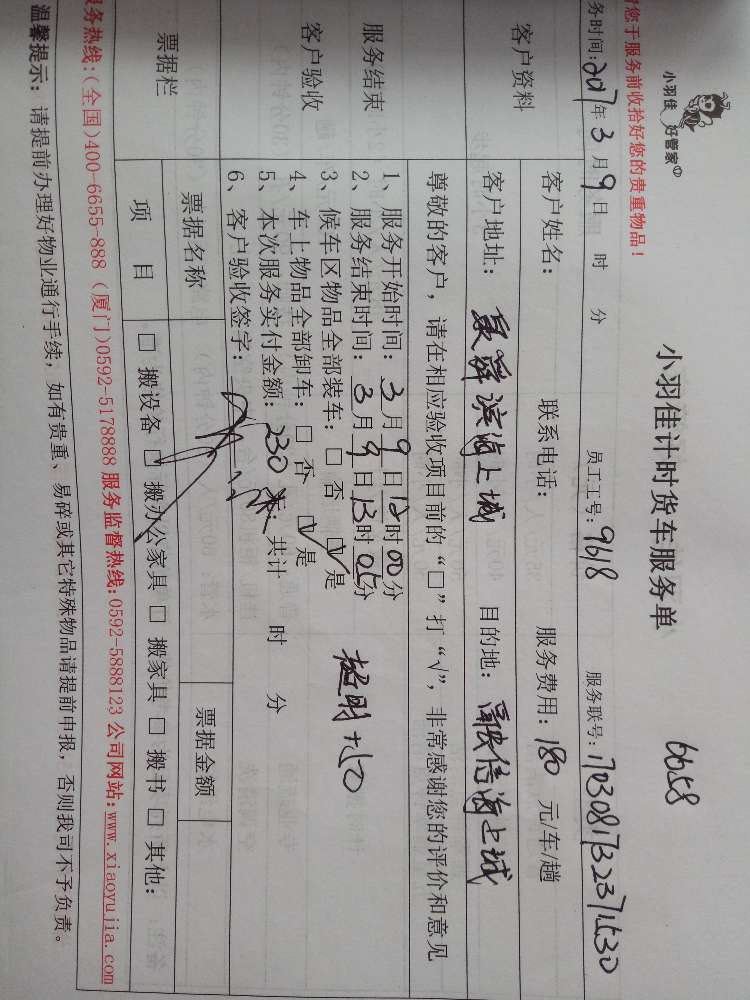 您于服务前收拾好您的贵重物品！
小羽佳 好管家
小羽佳计时货车服务单
6658
务时间：2017年3月9日 时 分 员工工号：9618 服务联号：
客户资料
客户姓名： 联系电话： 服务费用：180 元/车/趟
客户地址： 舜滨海上城 目的地： 信海上城
尊敬的客户，请在相应验收项目前的“□”打“√”，非常感谢您的评价和意见
服务结束
客户验收
1、服务开始时间：3月9日12时00分
2、服务结束时间：3月9日13时05分
3、候车区物品全部装车：□ 否 ☑ 是 超时+50
4、车上物品全部卸车：□ 否 ☑ 是
5、本次服务实付金额：230元；共计 时 分
6、客户验收签字：
票据栏
票据名称 票据金额
项 目 □ 搬设备 ☑ 搬办公家具 □ 搬家具 □ 搬书 □ 其他：
服务热线：(全国)400-6655-888 (厦门)0592-5178888 服务监督热线：0592-5888123 公司网站：www.xiaoyujia.com
温馨提示：请提前办理好物业通行手续，如有贵重、易碎或其它特殊物品请提前申报，否则我司不予负责。